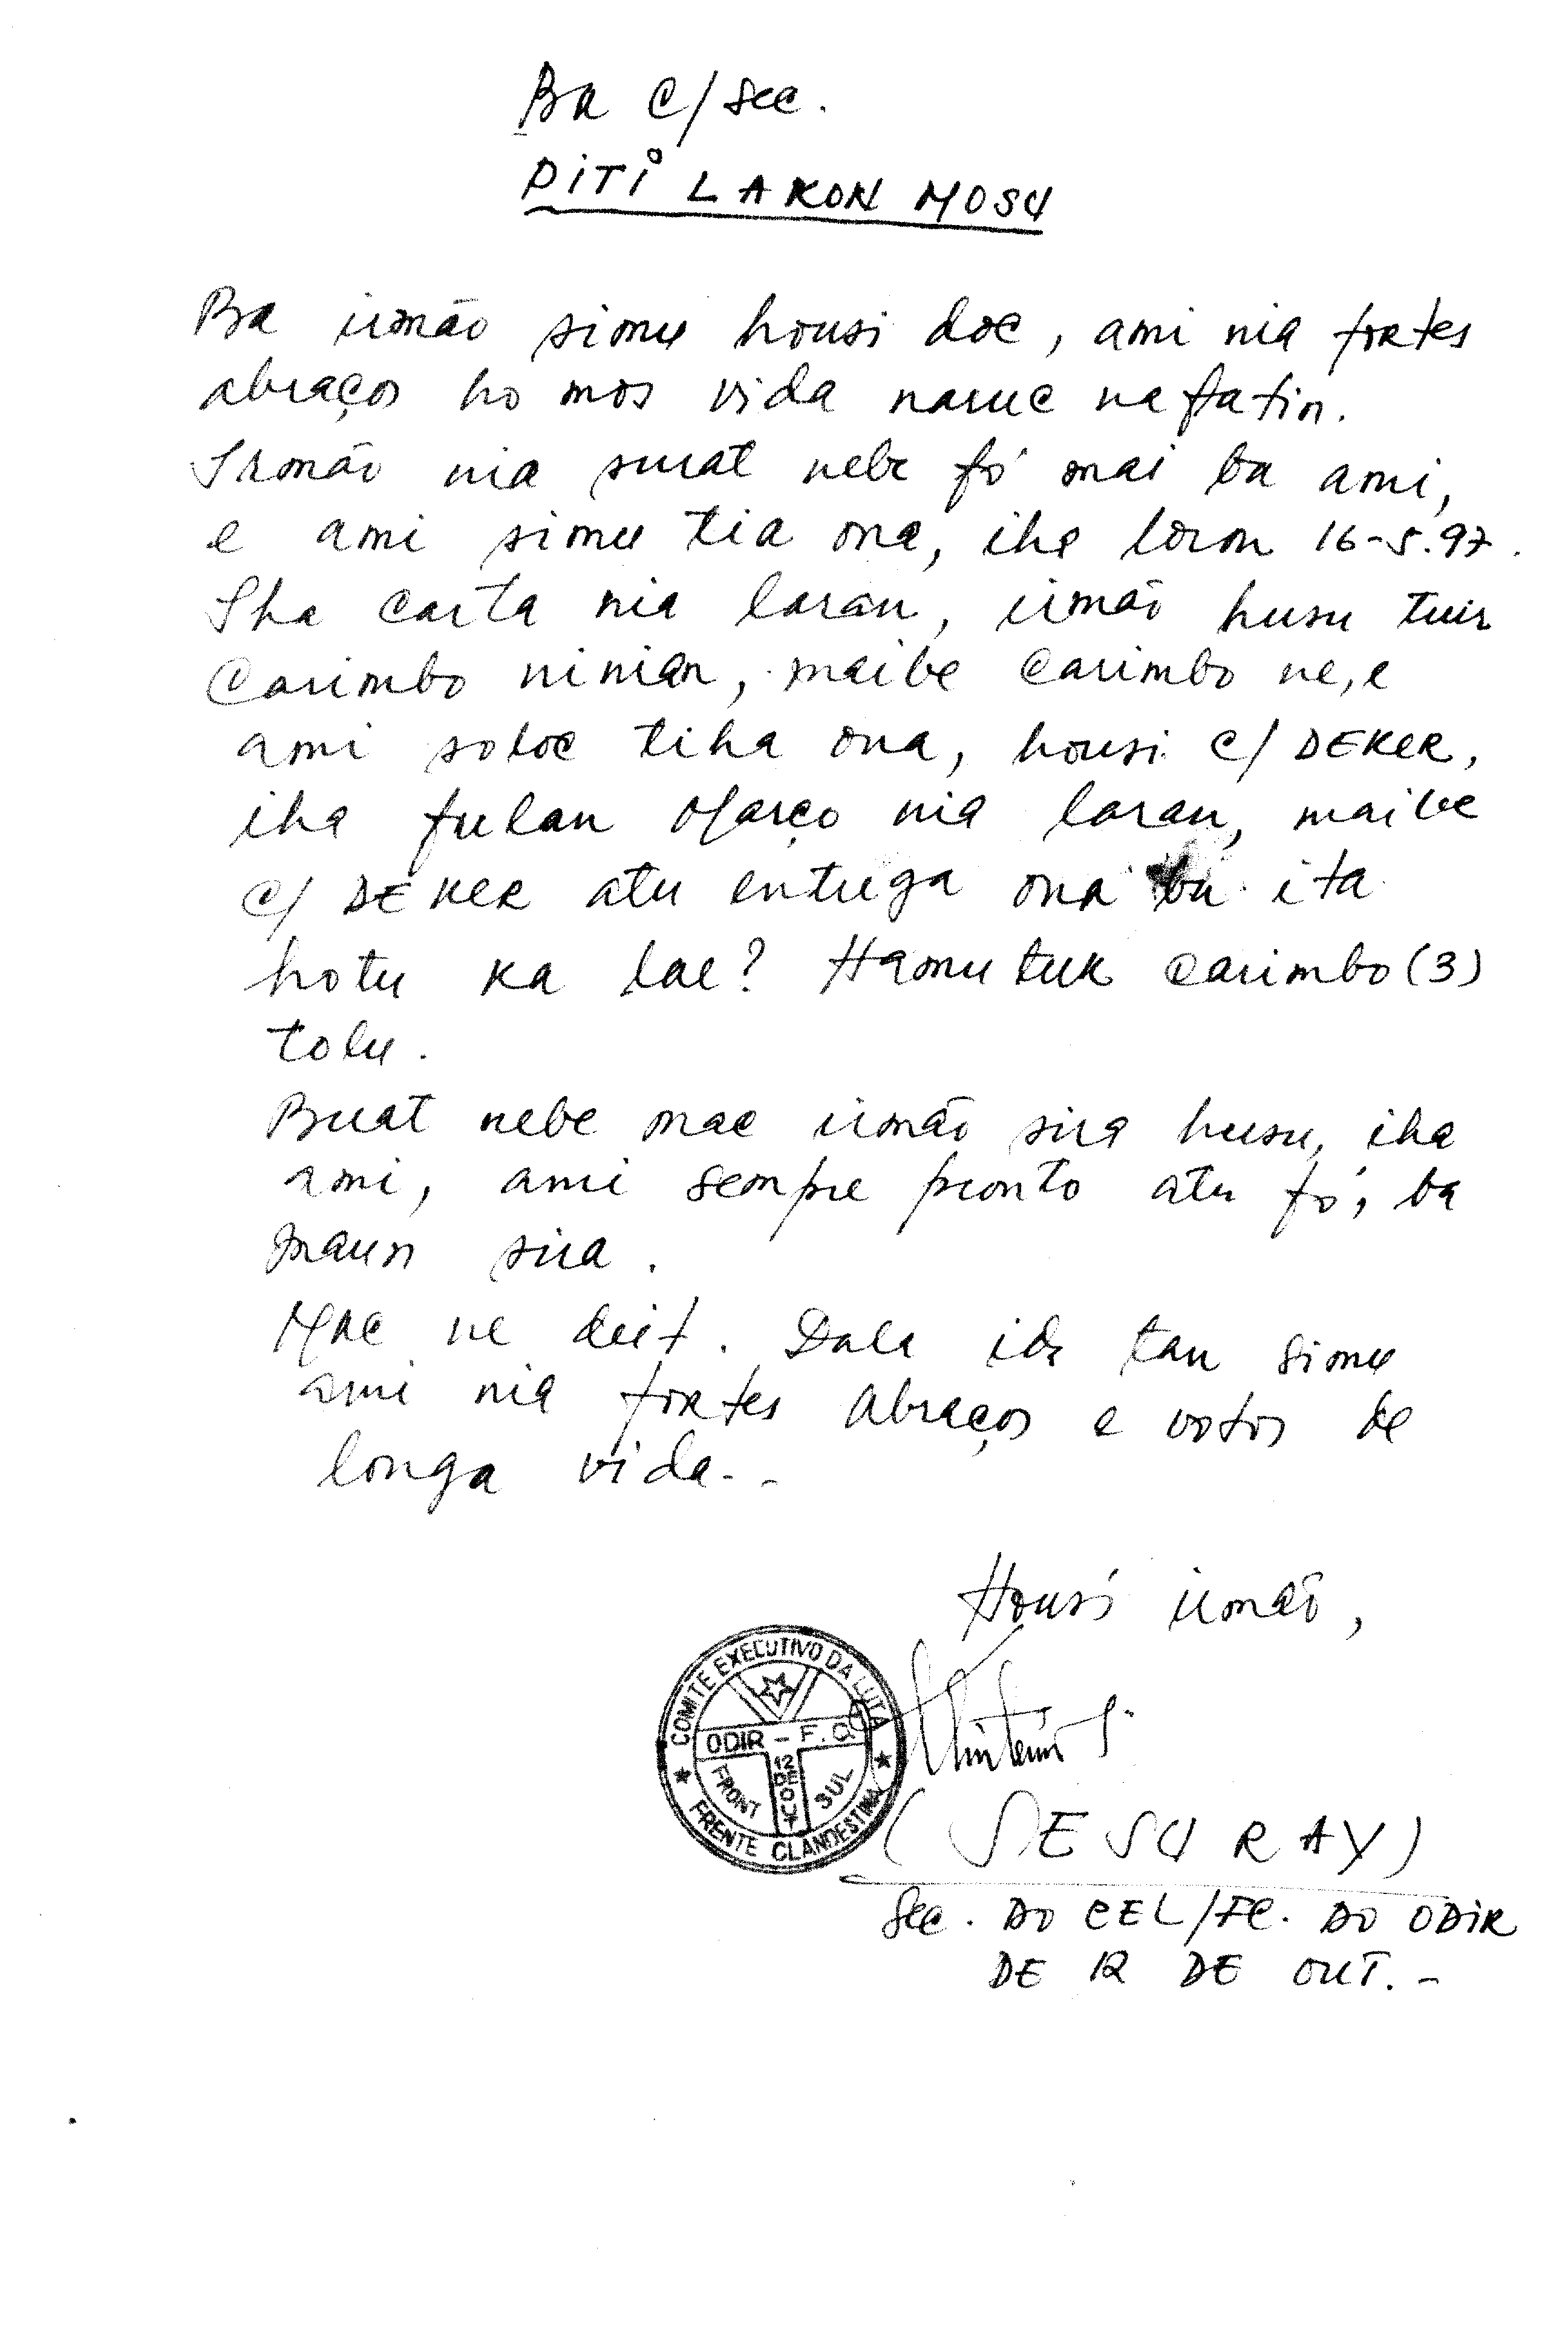 Ba c/sec.
DITI LAKON MOSU
Ba irmão simu housi doc, ami nia fortes
abraços ho mos vida naruc nafatin.
Irmão nia surat nebe fó mai ba ami,
e ami simu tia ona, iha loron 16-5.97.
Iha carta nia laran, irmão husu tuir
Carimbo ninian, maibe carimbo ne,e
ami soloc tiha ona, housi c/ DEKER,
iha fulan Março nia laran, maibe
c/ DEKER atu entrega ona ba ita
hotu ka lae? Hamutuk carimbo (3)
tolu.
Buat nebe mac irmão sira husu, iha
ami, ami sempre pronto atu fó, ba
maun sira.
Mac ne deit. Dala ida tan simu
ami nia fortes abraços e votos de
longa vida.--
Housi irmão,
COMITE EXECUTIVO DA LUTA
ODIR - F.C.
FRONT SUL
12 DE OUT
★ FRENTE CLANDESTINA ★
(SESU RAY)
Sec. DO CEL/FC. DO ODIR
DE 12 DE OUT.-